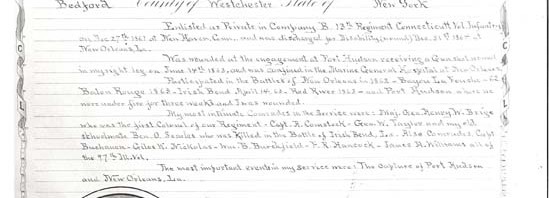 Bedford County of Westchester State of New York
Enlisted as Private in Company B. 13th Regiment Connecticut Vol. Infantry
on Nov. 27th 1861 at New Haven, Conn., and was discharged for Disability (wound) Dec. 31st 186 at
New Orleans, La.
Was wounded at the engagement at Port Hudson receiving a Gun shot wound
in my right leg on June 14th 1863, and was confined in the Marine General Hospital at New Orleans
Participated in the Battles of New Orleans in 1862 - Bayou La Fourche - 62
Baton Rouge 1862 - Irish Bend April 14. 63. Red River 1863 - and Port Hudson where we
were under fire for three weeks and I was wounded.
My most intimate Comrades in the Service were: Maj. Gen. Henry W. Birge
who was the first Colonel of our Regiment - Capt. A. Comstock - Geo. W. and my old
schoolmate Ben. O. who was Killed in the Battle of Irish Bend, La. Also Comrades, Capt
Buchanan - Giles K. Nicholas - Wm. B. Burchfield - F. R. Hancock - James H. Williams all of
the 77th Ill. Vol.
The most important events in my Service were: The Capture of Port Hudson
and New Orleans, La.